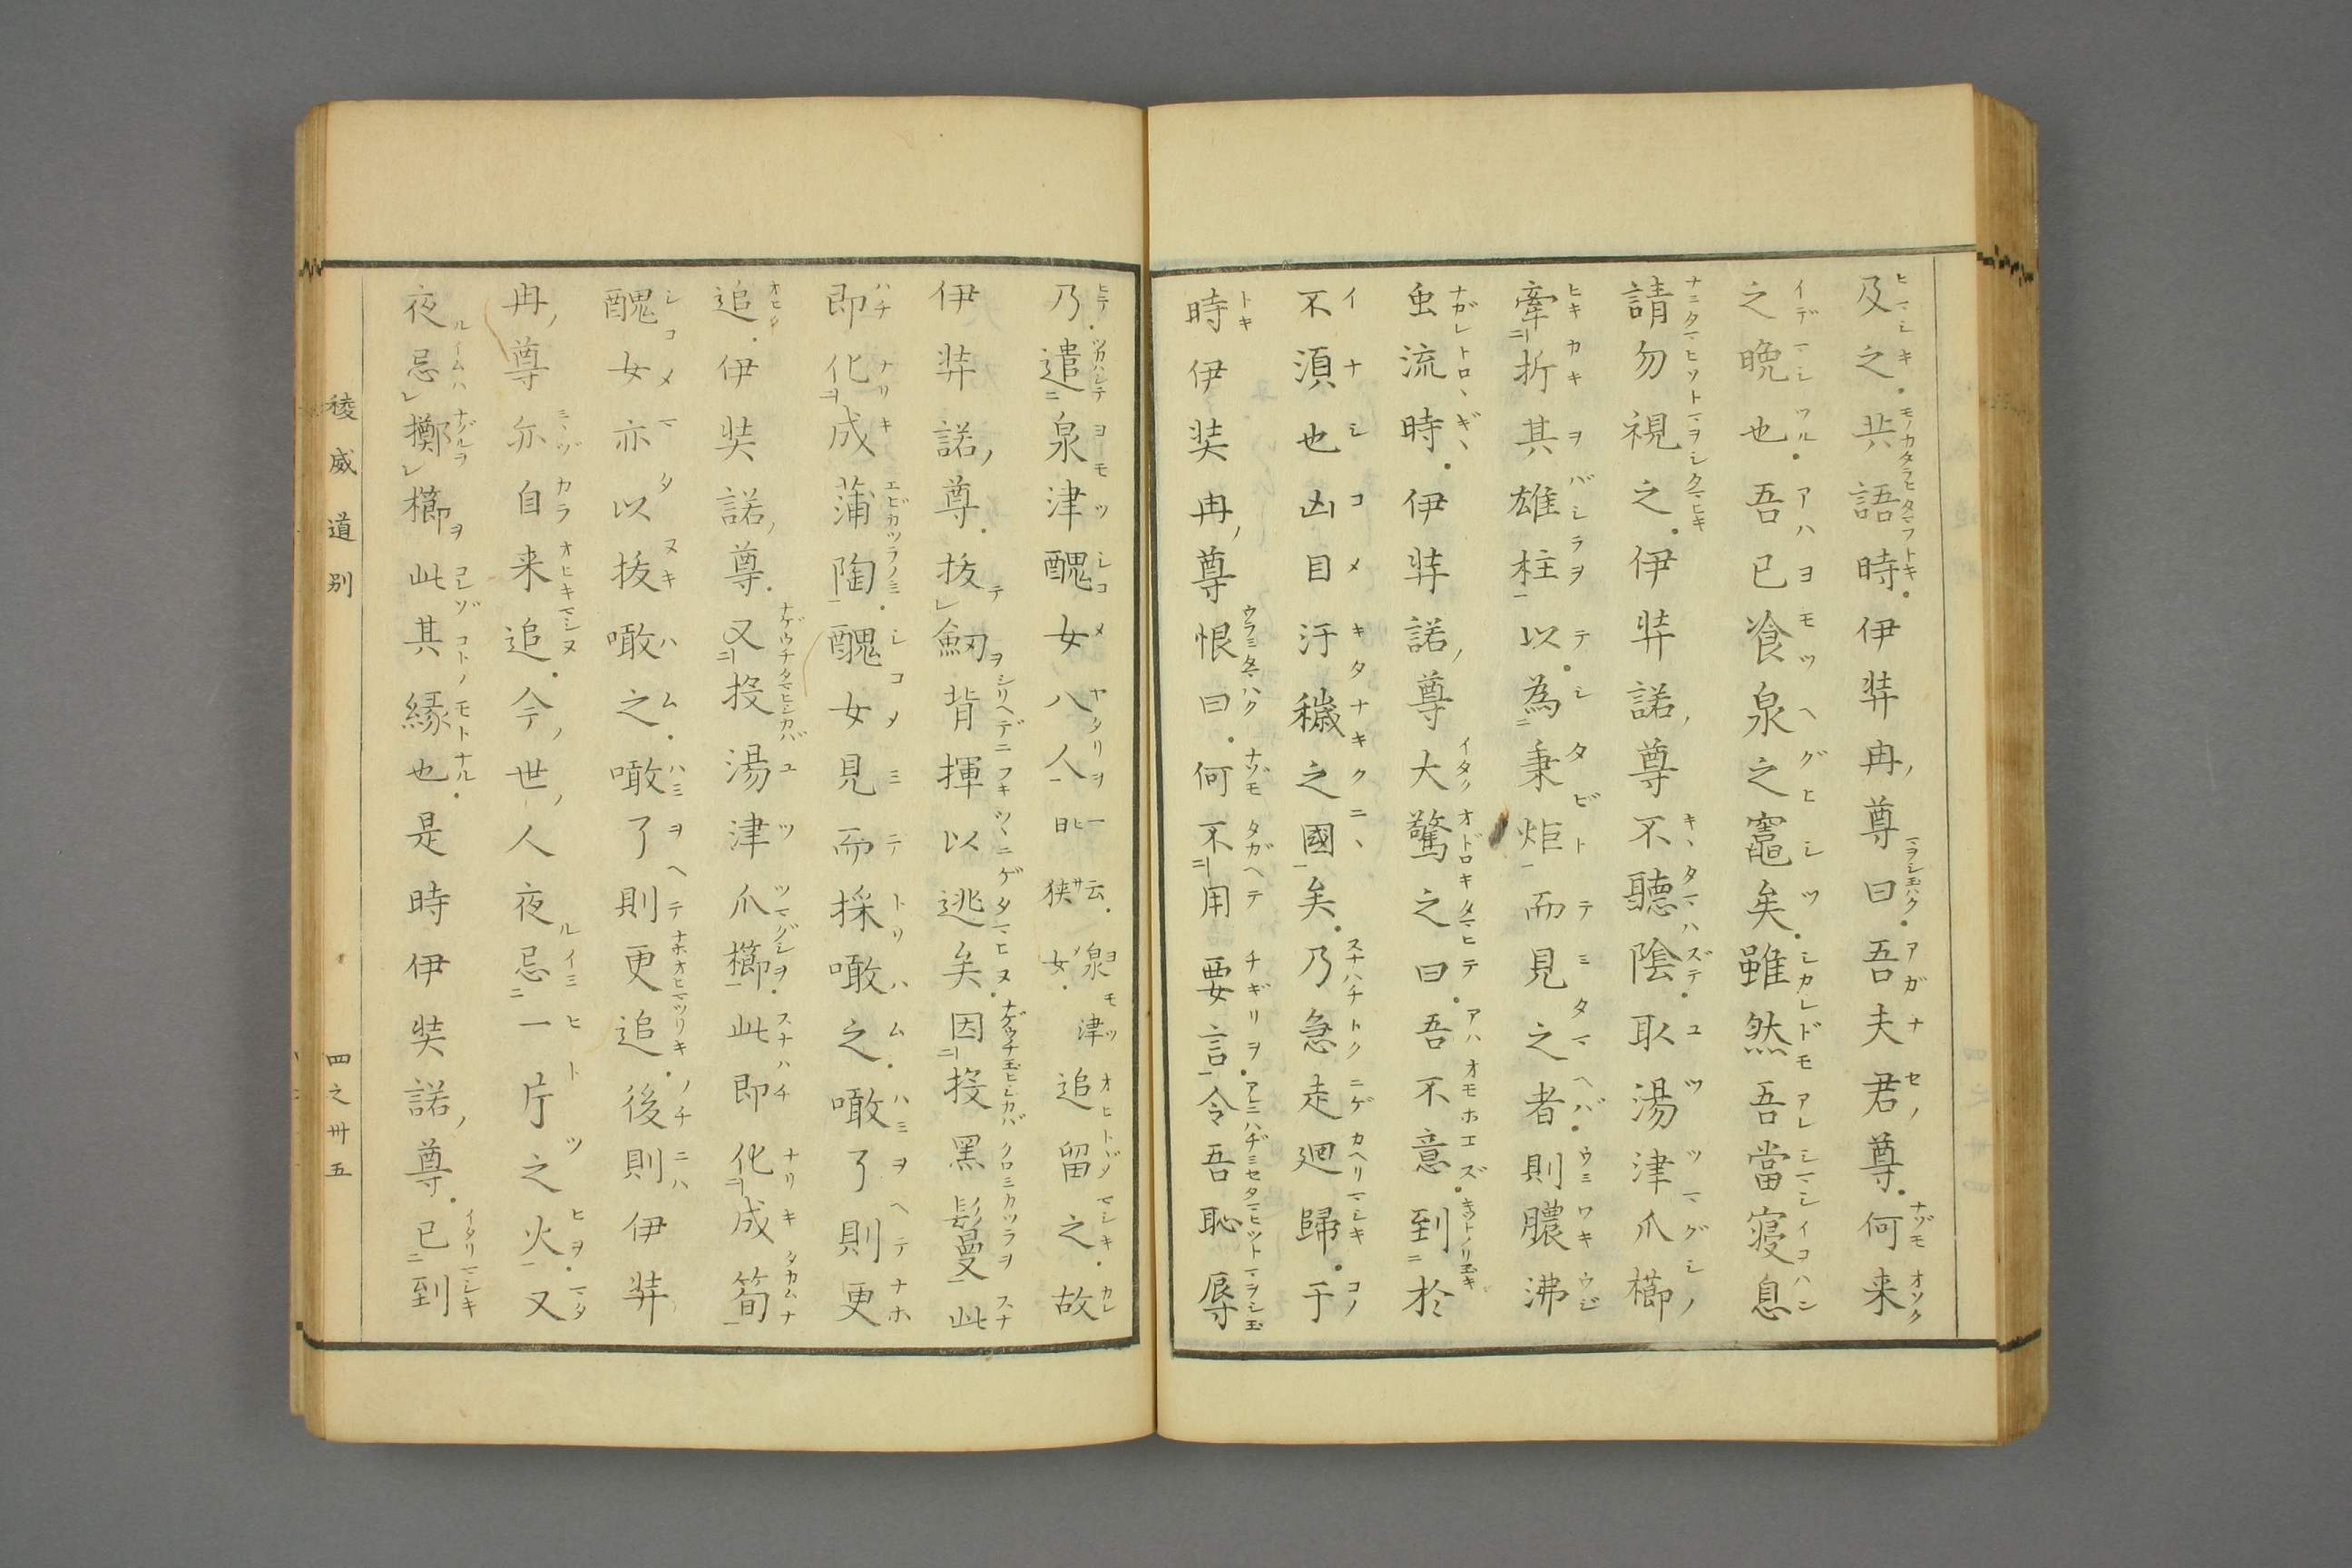 及之共語時伊弉冉尊曰吾夫君尊何来
之晩也吾已飡泉之竈矣雖然吾當寝息
請勿視之伊弉諾尊不聽陰取湯津爪櫛
牽折其雄柱以為秉炬而見之者則膿沸
虫流時伊弉諾尊大驚之曰吾不意到於
不須也凶目汙穢之國矣乃急走廻歸于
時伊奘冉尊恨曰何不用要言令吾恥辱
乃遣泉津醜女八人一云泉津日狭女追留之故
伊弉諾尊抜劒背揮以逃矣因投黒鬘此
即化成蒲陶醜女見而採噉之噉了則更
追伊奘諾尊又投湯津爪櫛此即化成筍
醜女亦以抜噉之噉了則更追後則伊弉
冉尊亦自来追今世人夜忌一片之火又
夜忌擲櫛此其縁也是時伊奘諾尊已到
稜威道別 四之卅五